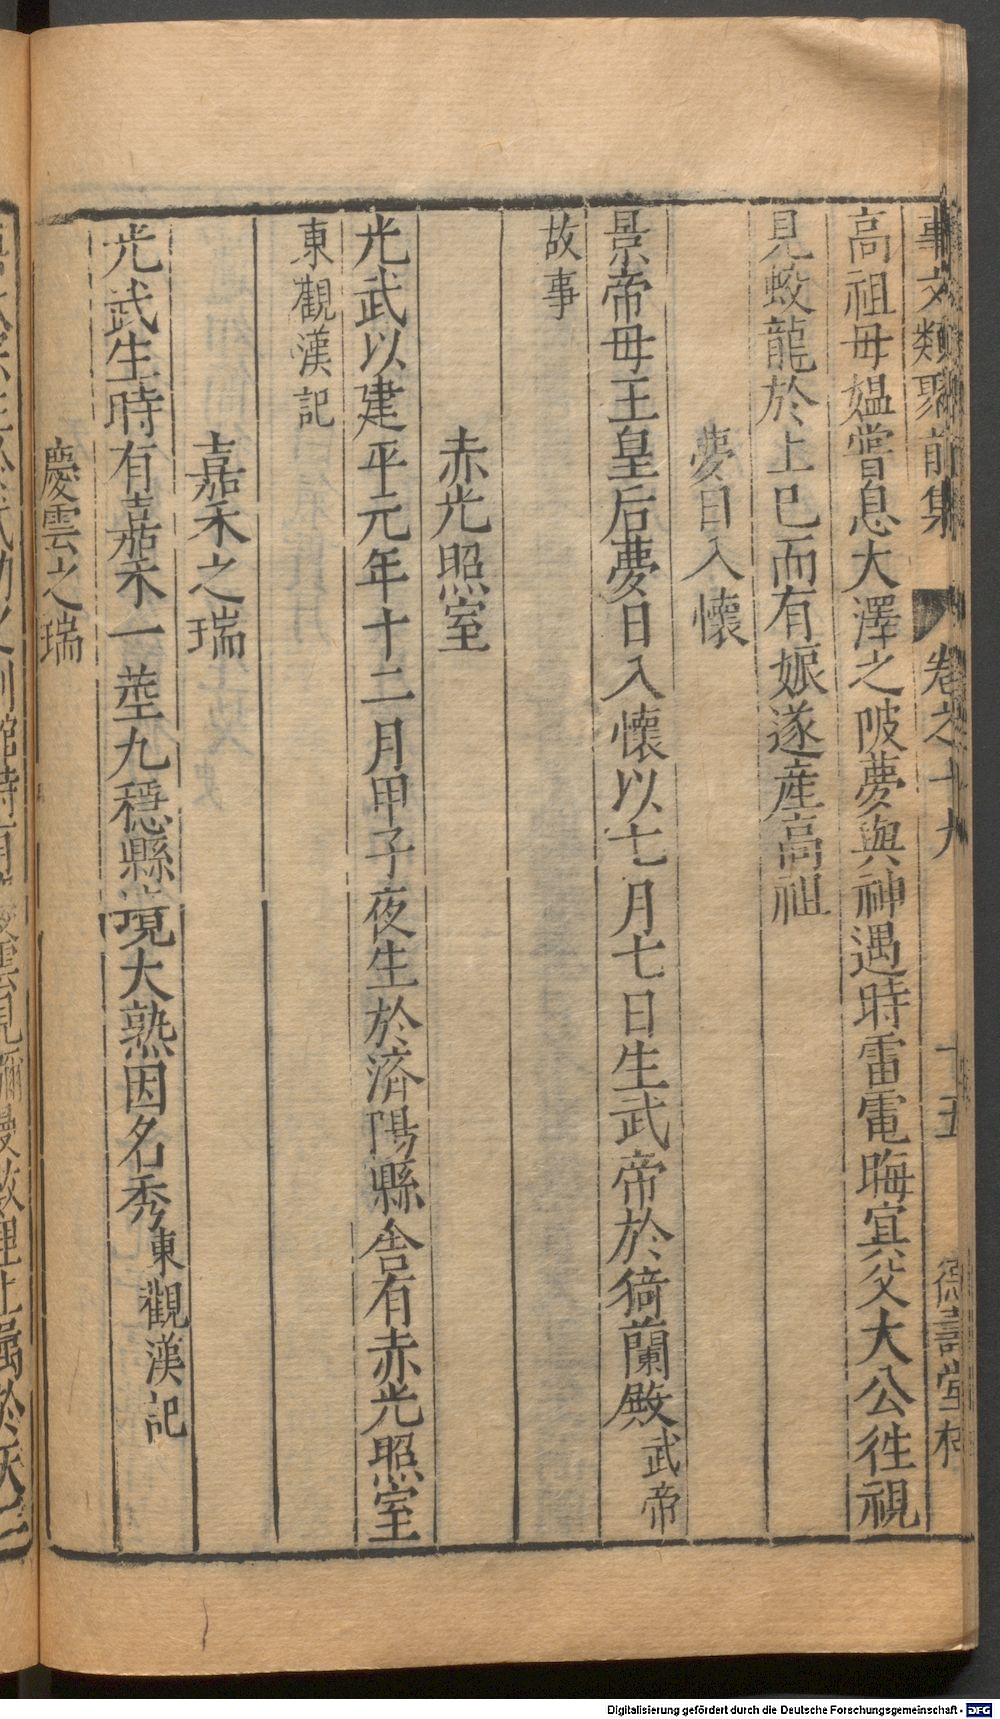 事文類聚前集 卷之十九 十五 德壽堂梓
高祖母媪嘗息大澤之陂夢與神遇時雷電晦冥父大公徃視
見蛟龍於上巳而有娠遂産高祖
夢日入懷
景帝母王皇后夢日入懷以七月七日生武帝於猗蘭殿武帝
故事
赤光照室
光武以建平元年十二月甲子夜生於濟陽縣舎有赤光照室
東觀漢記
嘉禾之瑞
光武生時有嘉禾一莖九穗縣境大熟因名秀東觀漢記
慶雲之瑞
Digitalisierung gefördert durch die Deutsche Forschungsgemeinschaft - DFG